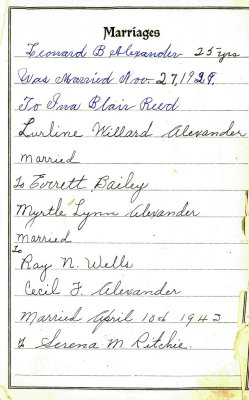 Marriages
Leonard B Alexander 25 yrs
Was Married Nov. 27, 1929.
To Ina Blair Reed
Lurline Willard Alexander
Married
To Everett Bailey
Myrtle Lynn Alexander
Married
To
Ray N. Wells
Cecil F. Alexander
Married April 10th 1943
to Serena M Ritchie.